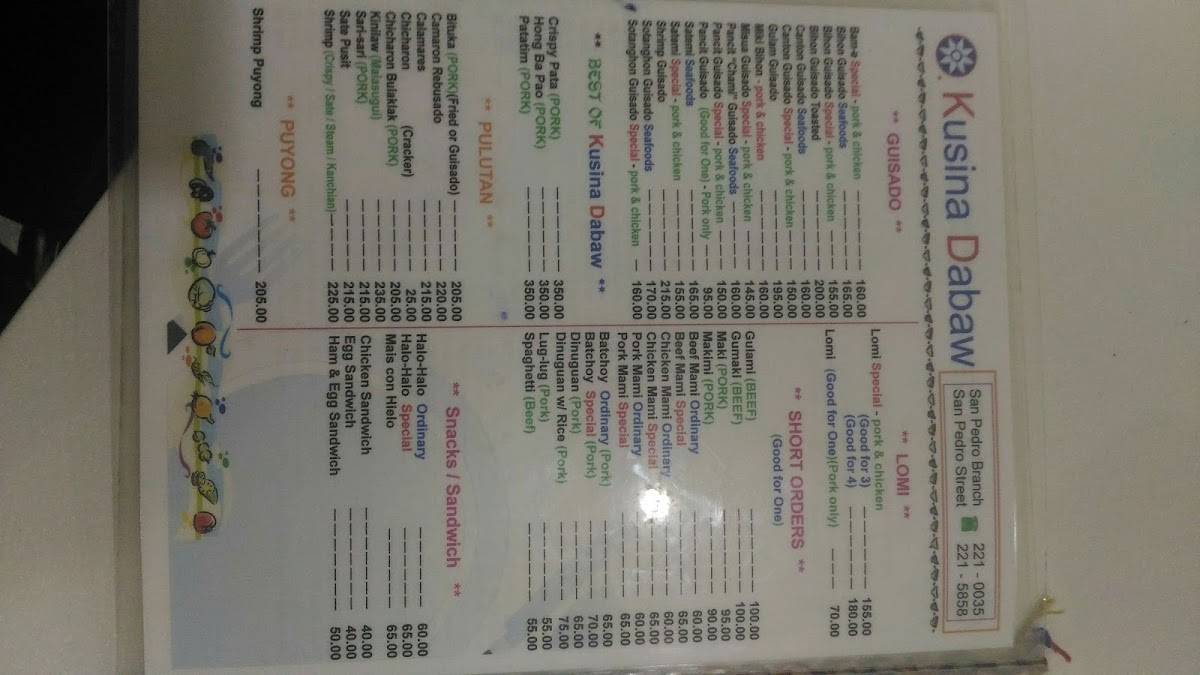 Kusina Dabaw
San Pedro Branch ☎ 221 - 0035
San Pedro Street 221 - 5858
** GUISADO **
Bam-e Special - pork & chicken 160.00
Bihon Guisado Seafoods 165.00
Bihon Guisado Special - pork & chicken 155.00
Bihon Guisado Toasted 200.00
Canton Guisado Seafoods 160.00
Canton Guisado Special - pork & chicken 150.00
Gulam Guisado 195.00
Miki Bihon - pork & chicken 160.00
Misua Guisado Special - pork & chicken 145.00
Pancit "Chami" Guisado Seafoods 160.00
Pancit Guisado Special - pork & chicken 150.00
Pancit Guisado (Good for One) - Pork only 95.00
Satami Seafoods 165.00
Satami Special - pork & chicken 155.00
Shrimp Guisado 215.00
Sotanghon Guisado Seafoods 170.00
Sotanghon Guisado Special - pork & chicken 160.00
** BEST OF Kusina Dabaw **
Crispy Pata (PORK) 350.00
Hong Ba Pao (PORK) 350.00
Patatim (PORK) 350.00
** PULUTAN **
Bituka (PORK)(Fried or Guisado) 205.00
Camaron Rebusado 220.00
Calamares 215.00
Chicharon (Cracker) 25.00
Chicharon Bulaklak (PORK) 205.00
Kinilaw (Malasugui) 235.00
Sari-sari (PORK) 215.00
Sate Pusit 215.00
Shrimp (Crispy / Sate / Steam / Kanchian) 225.00
** PUYONG **
Shrimp Puyong 205.00
** LOMI **
Lomi Special - pork & chicken
(Good for 3) 155.00
(Good for 4) 180.00
Lomi (Good for One)(Pork only) 70.00
** SHORT ORDERS **
(Good for One)
Gulami (BEEF) 100.00
Gumaki (BEEF) 100.00
Maki (PORK) 95.00
Makimi (PORK) 90.00
Beef Mami Ordinary 60.00
Beef Mami Special 65.00
Chicken Mami Ordinary 60.00
Chicken Mami Special 65.00
Pork Mami Ordinary 60.00
Pork Mami Special 65.00
Batchoy Ordinary (Pork) 65.00
Batchoy Special (Pork) 70.00
Dinuguan (Pork) 65.00
Dinuguan w/ Rice (Pork) 75.00
Lug-lug (Pork) 55.00
Spaghetti (Beef) 55.00
** Snacks / Sandwich **
Halo-Halo Ordinary 60.00
Halo-Halo Special 65.00
Mais con Hielo 65.00
Chicken Sandwich 40.00
Egg Sandwich 40.00
Ham & Egg Sandwich 50.00